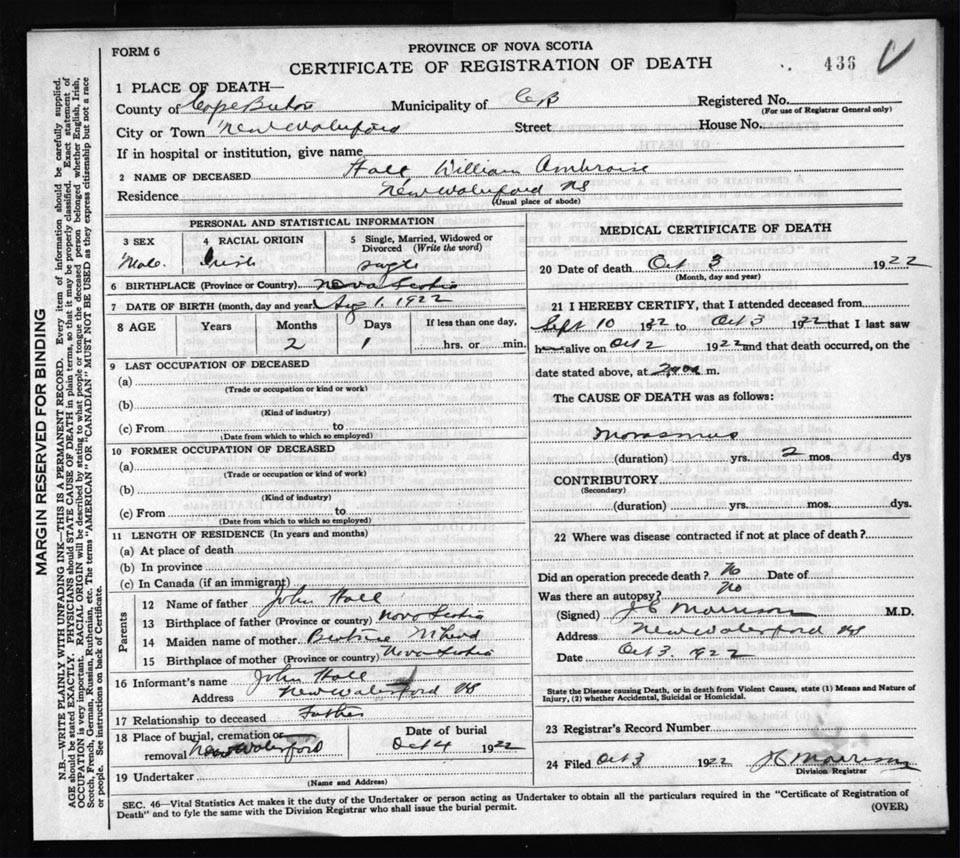 FORM 6
PROVINCE OF NOVA SCOTIA
CERTIFICATE OF REGISTRATION OF DEATH
436
MARGIN RESERVED FOR BINDING
N.B.—WRITE PLAINLY WITH UNFADING INK—THIS IS A PERMANENT RECORD. Every item of information should be carefully supplied.
AGE should be stated EXACTLY. PHYSICIANS should STATE CAUSE OF DEATH in plain terms, so that it may be properly classified. Exact statement of
OCCUPATION is very important. RACIAL ORIGIN will be described by stating to what people or tongue the deceased person belonged whether English, Irish,
Scotch, French, German, Russian, Ruthenian, etc. The terms "AMERICAN" OR "CANADIAN" MUST NOT BE USED as they express citizenship but not a race
or people. See instructions on back of Certificate.
1 PLACE OF DEATH—
County of Cape Breton Municipality of CB Registered No.
(For use of Registrar General only)
City or Town New Waterford Street House No.
If in hospital or institution, give name
2 NAME OF DECEASED Hall William Ambroise
Residence New Waterford NS
(Usual place of abode)
PERSONAL AND STATISTICAL INFORMATION
3 SEX Male 4 RACIAL ORIGIN Irish 5 Single, Married, Widowed or Divorced (Write the word) Single
6 BIRTHPLACE (Province or Country) Nova Scotia
7 DATE OF BIRTH (month, day and year) Aug 1, 1922
8 AGE Years Months Days If less than one day,
2 1 hrs. or min.
9 LAST OCCUPATION OF DECEASED
(a)
(Trade or occupation or kind or work)
(b)
(Kind of industry)
(c) From to
(Date from which to which so employed)
10 FORMER OCCUPATION OF DECEASED
(a)
(Trade or occupation or kind of work)
(b)
(Kind of industry)
(c) From to
(Date from which to which so employed)
11 LENGTH OF RESIDENCE (In years and months)
(a) At place of death
(b) In province
(c) In Canada (if an immigrant)
Parents
12 Name of father John Hall
13 Birthplace of father (Province or country) Nova Scotia
14 Maiden name of mother
15 Birthplace of mother (Province or country) Nova Scotia
16 Informant's name John Hall
Address New Waterford NS
17 Relationship to deceased Father
18 Place of burial, cremation or Date of burial
removal New Waterford Oct 4 1922
19 Undertaker
(Name and Address)
MEDICAL CERTIFICATE OF DEATH
20 Date of death Oct 3 1922
(Month, day and year)
21 I HEREBY CERTIFY, that I attended deceased from
Sept 10 1922 to Oct 3 1922 that I last saw
h alive on Oct 2 1922 and that death occurred, on the
date stated above, at m.
The CAUSE OF DEATH was as follows:
Marasmus
(duration) yrs. 2 mos. dys
CONTRIBUTORY
(Secondary)
(duration) yrs. mos. dys.
22 Where was disease contracted if not at place of death?
Did an operation precede death? No Date of
Was there an autopsy? No
(Signed) J C Morrison M.D.
Address New Waterford NS
Date Oct 3. 1922
State the Disease causing Death, or in death from Violent Causes, state (1) Means and Nature of
Injury, (2) whether Accidental, Suicidal or Homicidal.
23 Registrar's Record Number
24 Filed Oct 3 1922 J C Morrison
Division Registrar
SEC. 46—Vital Statistics Act makes it the duty of the Undertaker or person acting as Undertaker to obtain all the particulars required in the "Certificate of Registration of
Death" and to fyle the same with the Division Registrar who shall issue the burial permit.
(OVER)